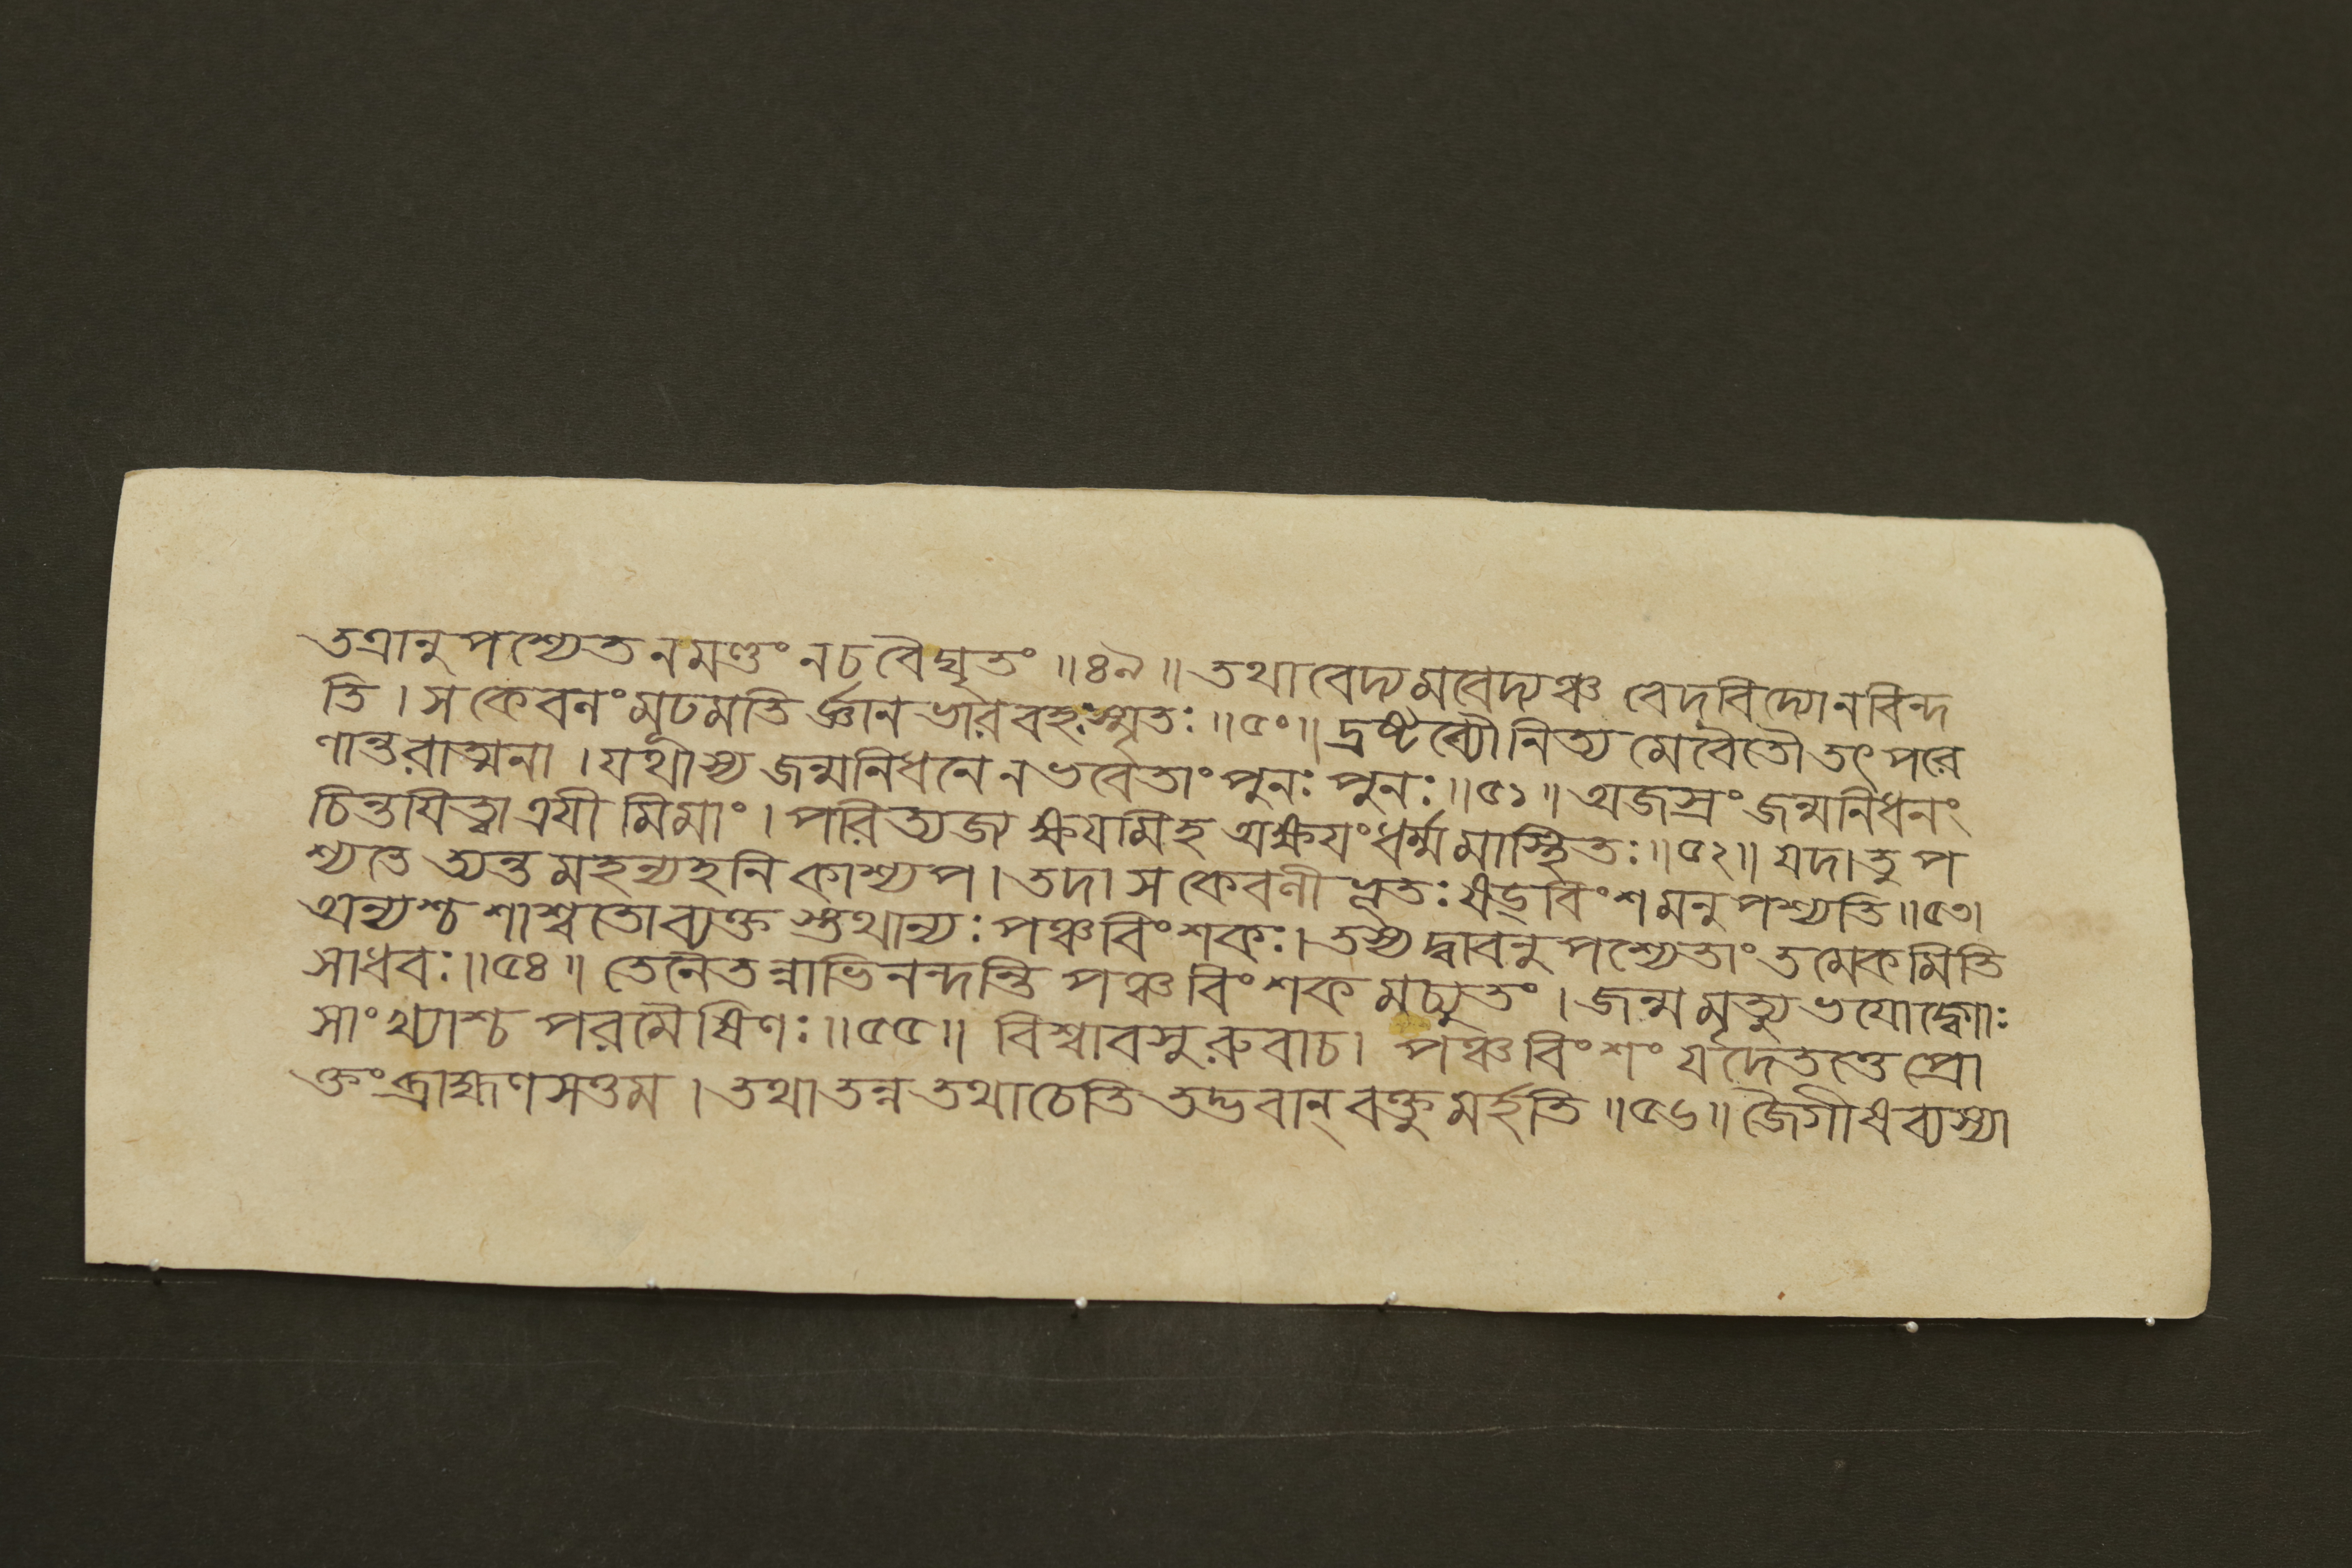 তত্রানুপশ্যেত নমণ্ডং নচবৈঘৃতং ॥৪৯॥ তথাবেদ্যমবেদ্যঞ্চ বেদবিদ্যোনবিন্দ
তি । স কেবলং মূঢমতির্জ্ঞানভারবহঃস্মৃতঃ ॥৫০॥ দ্রষ্টব্যৌনিত্যমেবৈতৌ তৎপরে
ণান্তরাত্মনা । যথাস্য জন্মনিধনে ন ভবেতাং পুনঃ পুনঃ ॥৫১॥ অজস্রং জন্মনিধনং
চিন্তযিত্বা ত্রযীমিমাং । পরিত্যজ্য ক্ষযমিহ অক্ষযং ধর্ম্মমাস্থিতঃ ॥৫২॥ যদা তু প
শ্যতে ত্যন্তমহন্যহনি কাশ্যপ । তদা স কেবলী ভূতঃ ষড্‌বিংশমনুপশ্যতি ॥৫৩।
অন্যশ্চ শাশ্বতোব্যক্তস্তথান্যঃ পঞ্চবিংশকঃ । তস্য দ্বাবনুপশ্যেতাং তমেকমিতি
সাধবঃ ॥৫৪॥ তেনৈতন্নাভিনন্দন্তি পঞ্চবিংশকমচ্যুতং । জন্মমৃত্যুভযোদ্বোঃ
সাংখ্যাশ্চ পরমৈষিণঃ ॥৫৫॥ বিশ্বাবসুরুবাচ । পঞ্চবিংশং যদেতত্তে প্রো
ক্তং ব্রাহ্মণসত্তম । তথা তন্ন তথা চেতি তদ্ভবান্ বক্তুমর্হতি ॥৫৬॥ জৈগীষব্যস্যা